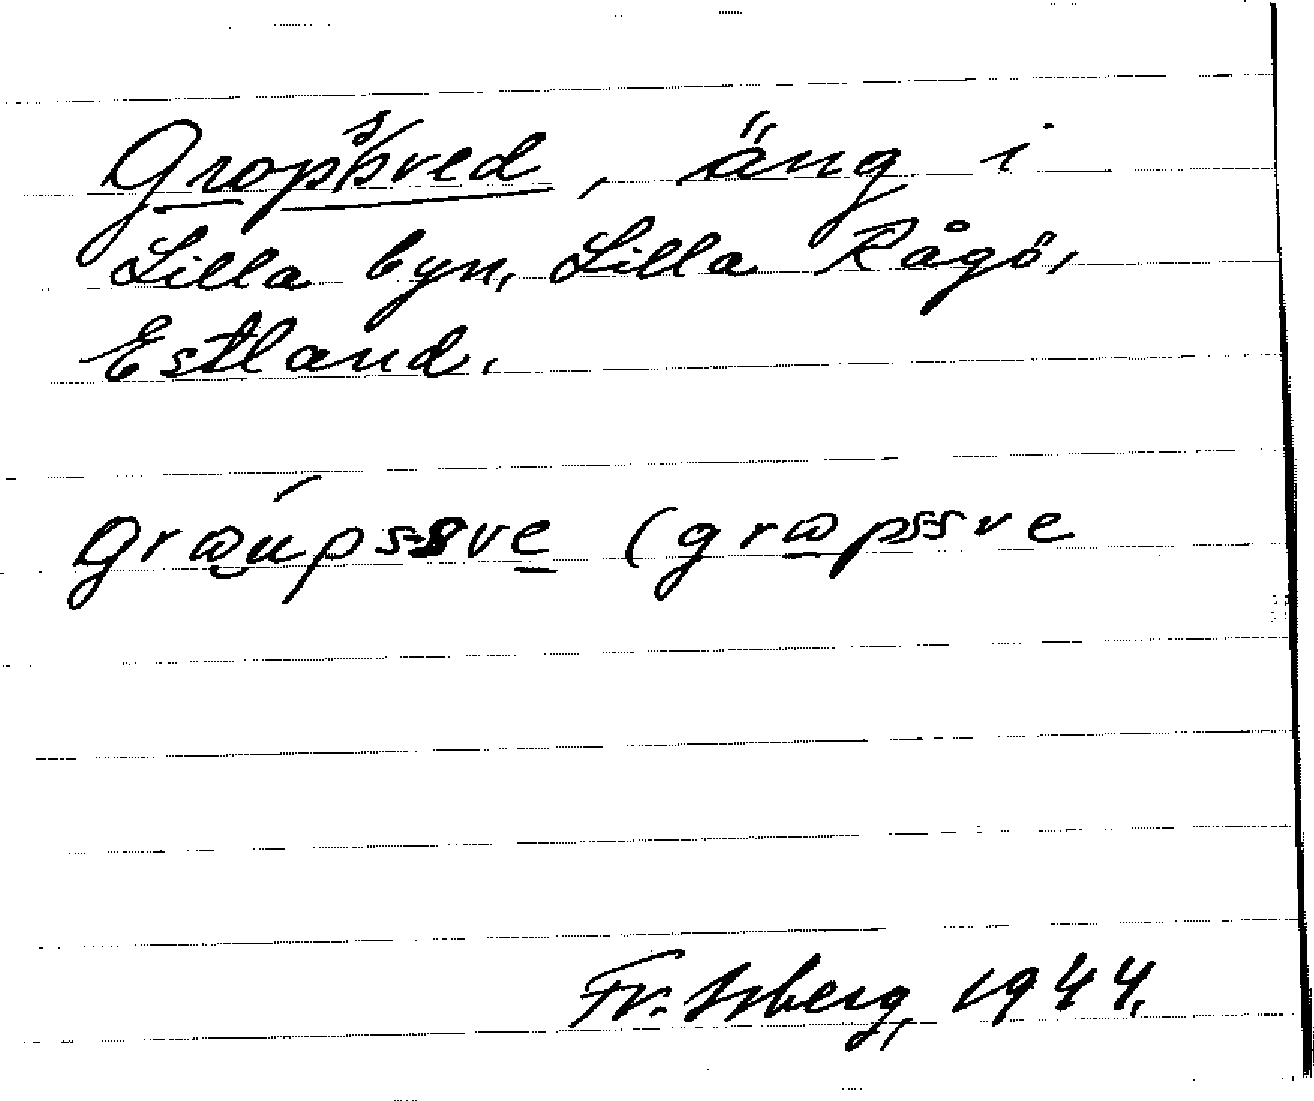 Gropssved, äng i
Lilla byn, Lilla Rågö,
Estland.
graupssve (grapssve
Fr. Isberg, 1944.